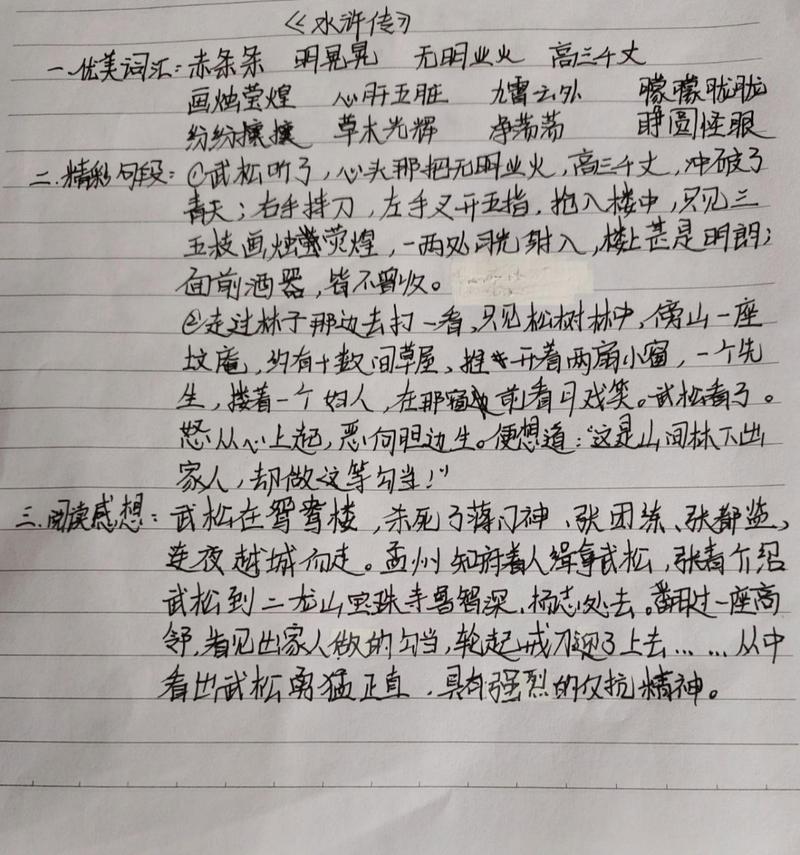 《水浒传》
一.优美词汇：赤条条 明晃晃 无明业火 高三千丈
画烛莹煌 心肝五脏 九霄云外 朦朦胧胧
纷纷攘攘 草木光辉 净荡荡 睁圆怪眼
二.精彩句段：①武松听了，心头那把无明业火，高三千丈，冲破了
青天；右手持刀，左手叉开五指，抢入楼中，只见三
五枝画烛荧煌，一两处月光射入，楼上甚是明朗；
面前酒器，皆不曾收。
②走过林子那边去打一看，只见松树林中，傍山一座
坟庵，约有十数间草屋，推开着两扇小窗，一个先
生，搂着一个妇人，在那窗前看月戏笑。武松看了。
怒从心上起，恶向胆边生。便想道：“这是山间林下出
家人，却做这等勾当！”
三.阅读感想：武松在鸳鸯楼，杀死了蒋门神、张团练、张都监，
连夜越城而走。孟州知府着人缉拿武松，张青介绍
武松到二龙山宝珠寺鲁智深、杨志处去。翻过一座高
岭，看见出家人做的勾当，轮起戒刀迎了上去……从中
看出武松勇猛正直，具有强烈的反抗精神。